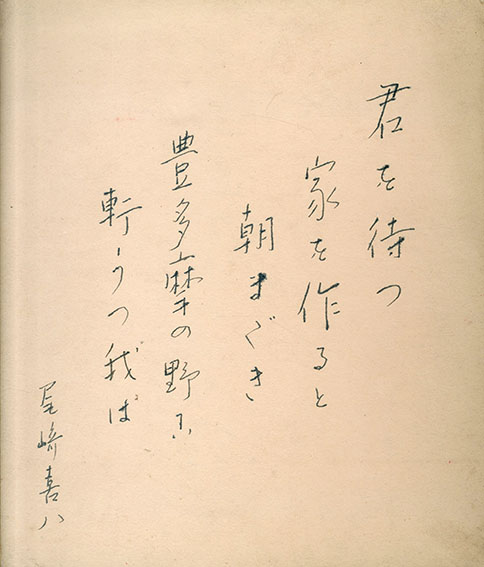 君を待つ
家を作ると
朝まだき
豊多摩の野に
斬うつ我は
尾崎喜八